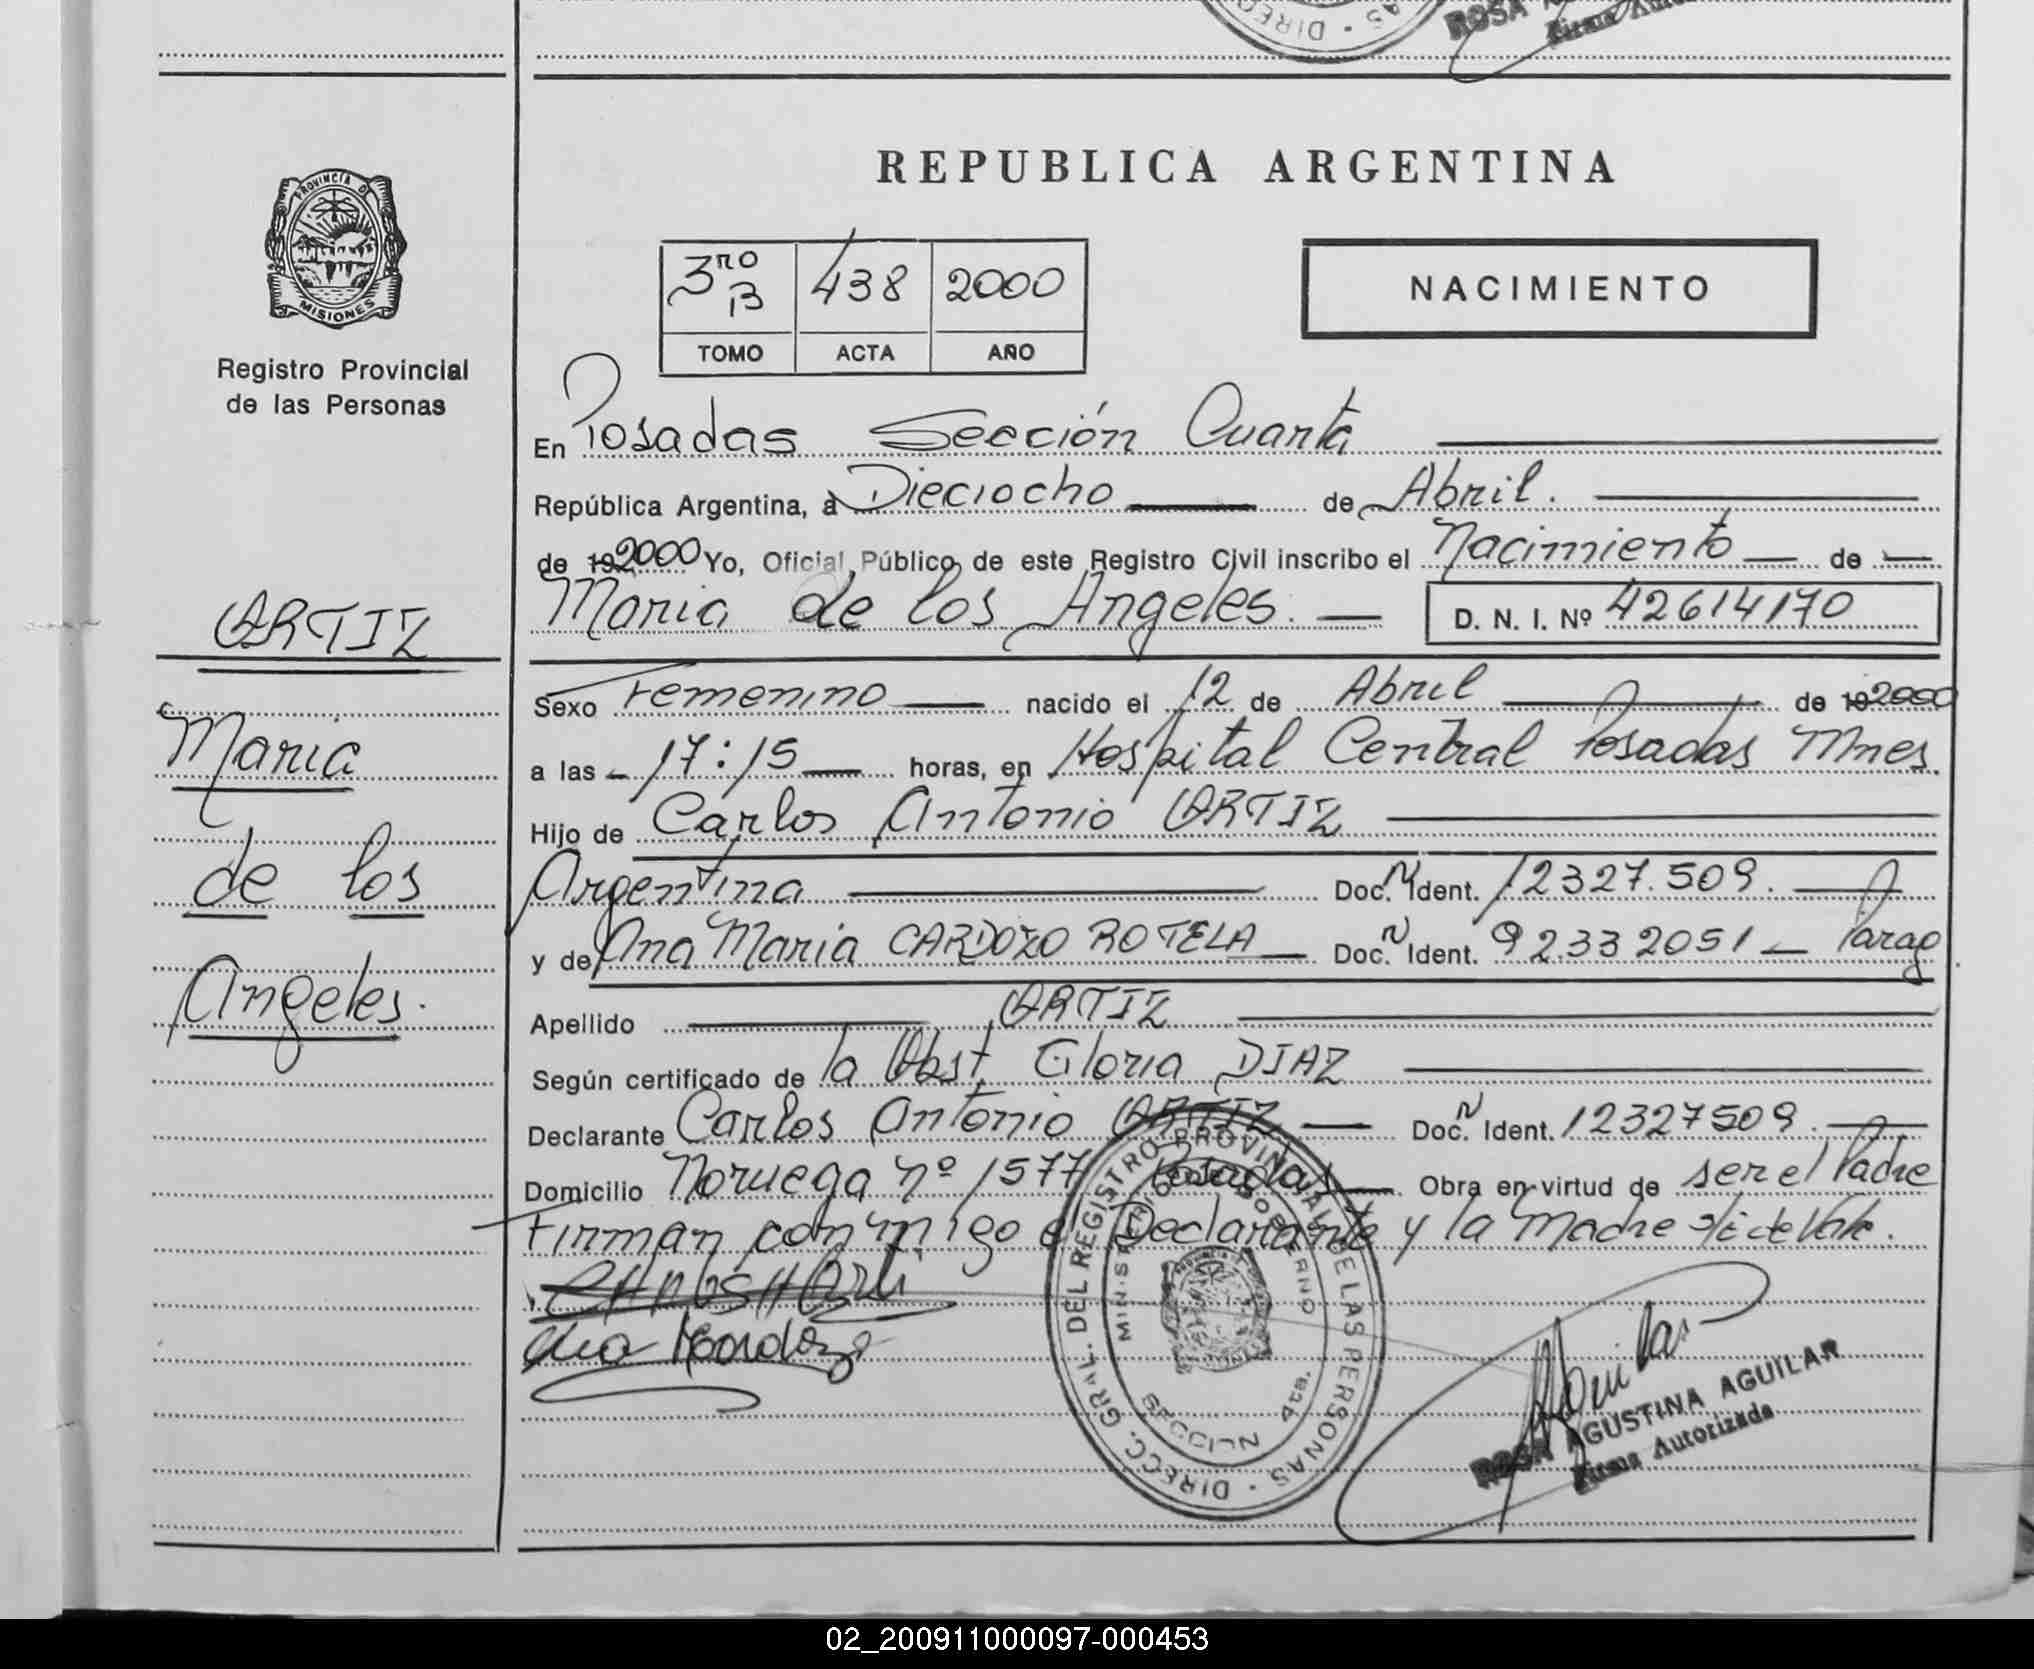 ROSA
Firma
REPUBLICA ARGENTINA
PROVINCIA DE
MISIONES
Registro Provincial
de las Personas
3ro B 438 2000
TOMO ACTA AÑO
NACIMIENTO
En Posadas Sección Cuarta
República Argentina, a Dieciocho de Abril.
de 192000 Yo, Oficial Público de este Registro Civil inscribo el Nacimiento de
Maria de los Angeles. D. N. I. Nº 42614170
ORTIZ
Maria
de los
Angeles.
Sexo Femenino nacido el 12 de Abril de 192000
a las 17:15 horas, en Hospital Central Posadas Mnes.
Hijo de Carlos Antonio ORTIZ
Argentina Doc. N Ident. 12327.509.
y de Ana Maria CARDOZO ROTELA Doc. N Ident. 92.332051 Parag
Apellido ORTIZ
Según certificado de la Obst. Gloria DIAZ
Declarante Carlos Antonio ORTIZ Doc. N Ident. 12327509.
Domicilio Noruega nº 1577 Posadas Obra en virtud de ser el Padre
Firman conmigo el Declarante y la Madre
Ana Cardozo
DIRECC. GRAL. DEL REGISTRO PROVINCIAL DE LAS PERSONAS
MINISTERIO DE GOBIERNO
SECCION 4ta.
Aguilar
ROSA AGUSTINA AGUILAR
Firma Autorizada
02_200911000097-000453